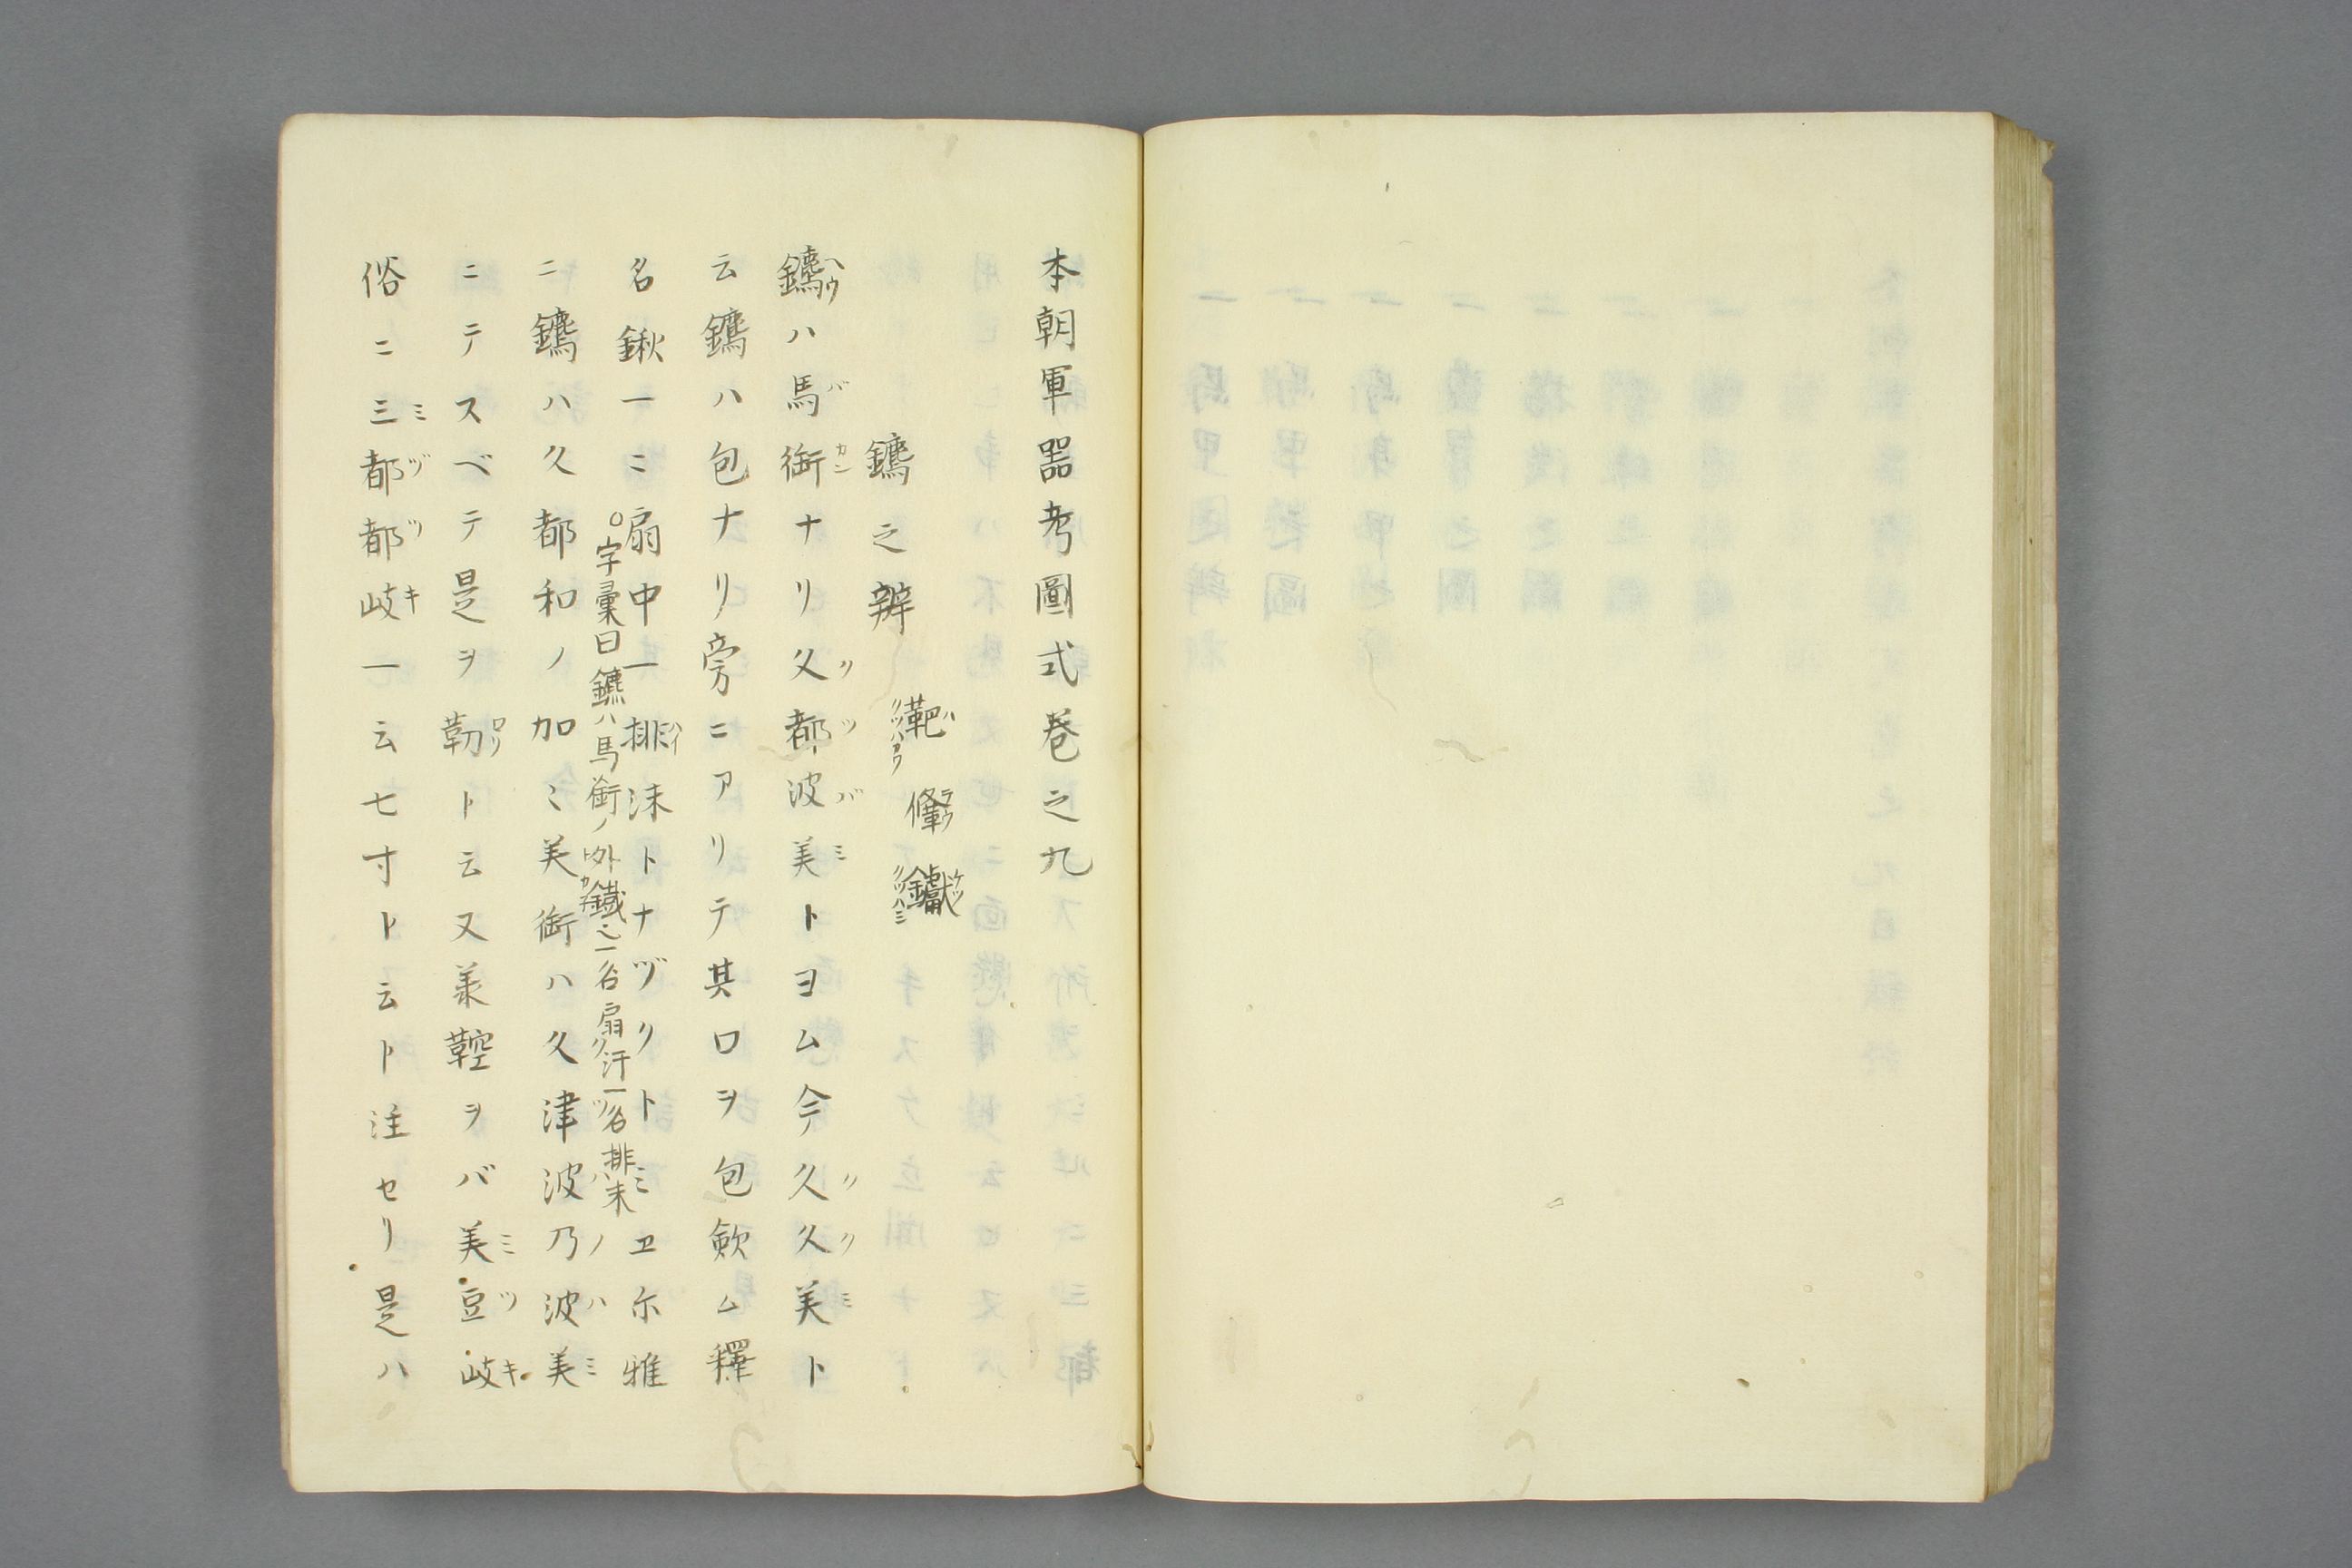 本朝軍器考圖式巻之九
鑣之辨 靶 鞗 钀
鑣ハ馬銜ナリ久都波美トヨム今久久美ト
云鑣ハ包ナリ旁ニアリテ其口ヲ包歛ム釋
名鍬一ニ扇中一排沫トナヅクトミヱ尓雅
○字彙曰鑣ハ馬銜ノ外鐵也一名扇汗一名排末
ニ鑣ハ久都和ノ加ミ美銜ハ久津波乃波美
ニテスベテ是ヲ勒ト云又羕鞚ヲバ美豆岐
俗ニ三都都岐一云七寸ト云ト注セリ是ハ